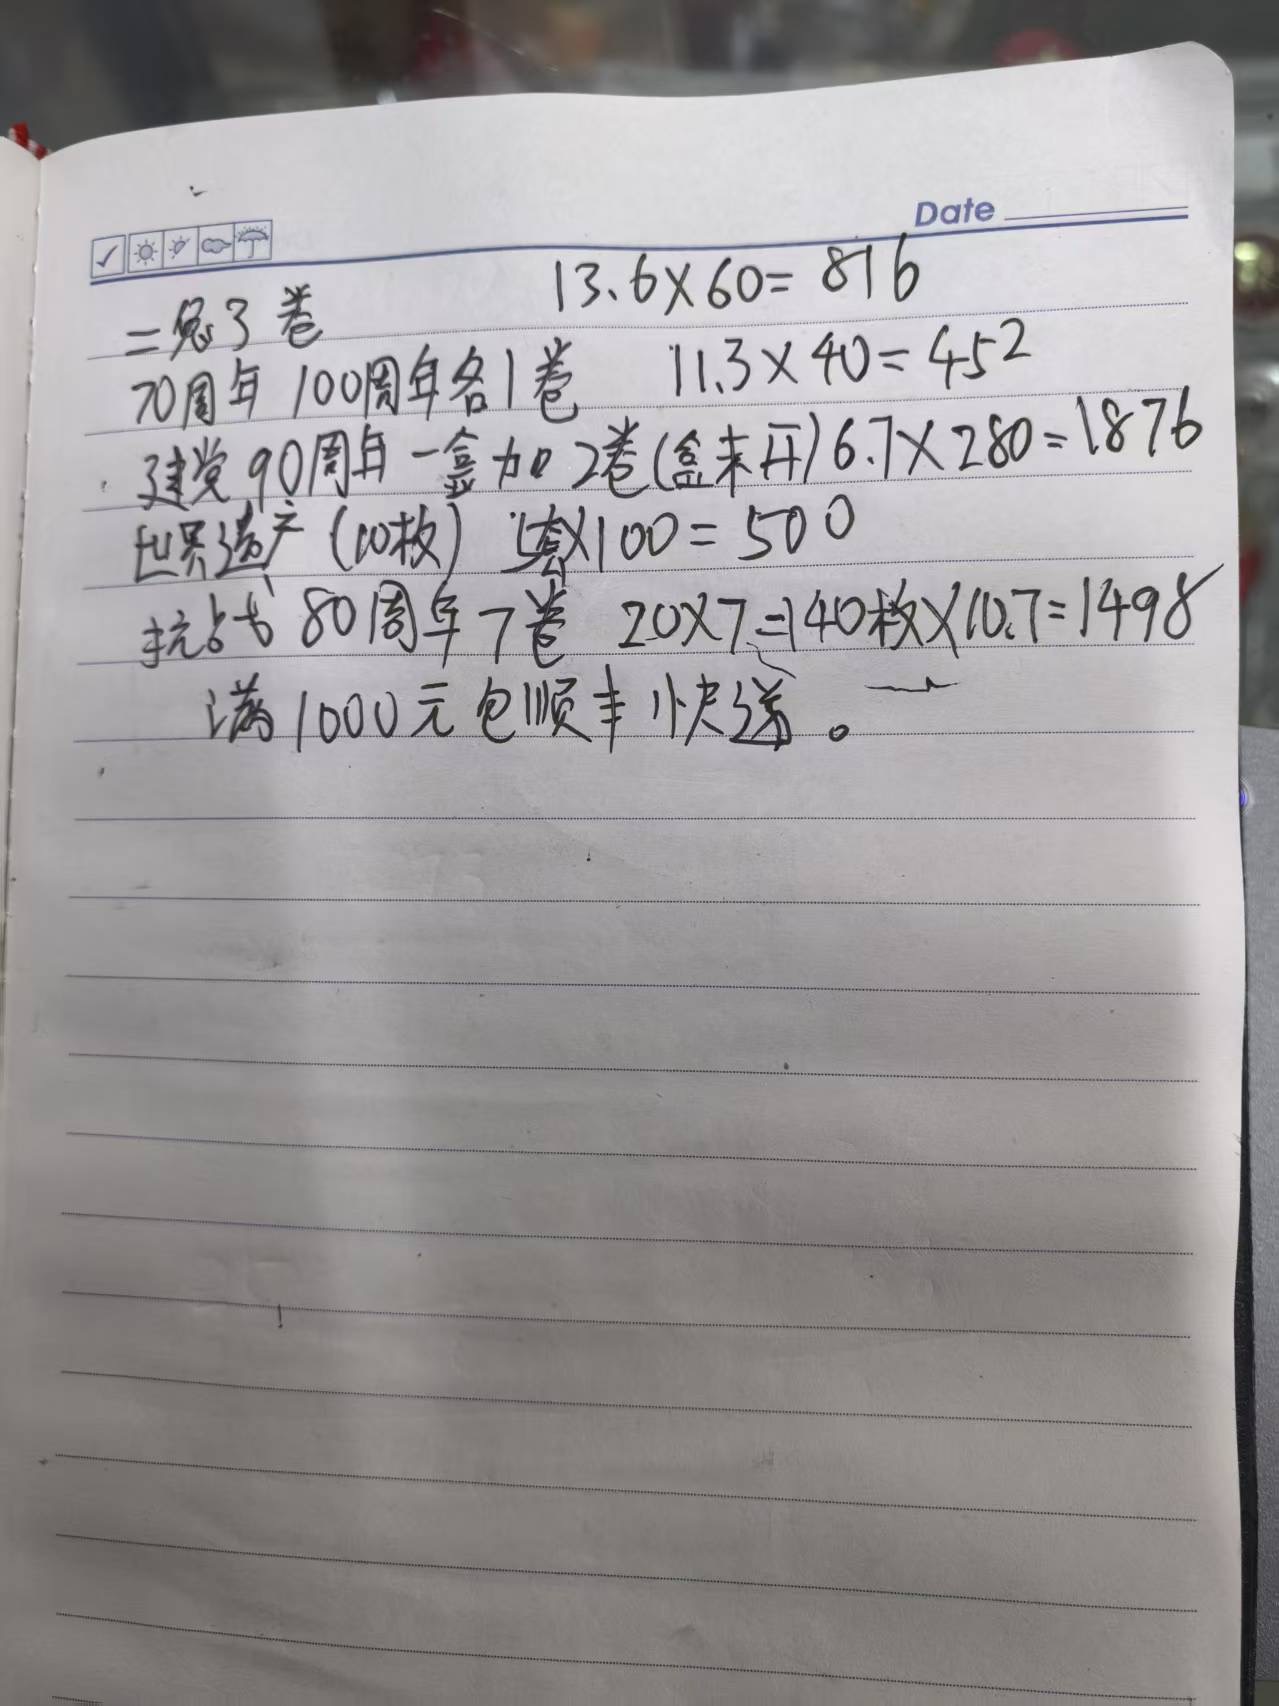 Date
二兔3卷 13.6×60=816
70周年 100周年各1卷 11.3×40=452
建党90周年一盒加2卷(盒未开)6.7×280=1876
世界遗产(10枚) 5套×100=500
抗战80周年7卷 20×7=140枚×10.7=1498
满1000元包顺丰快递。